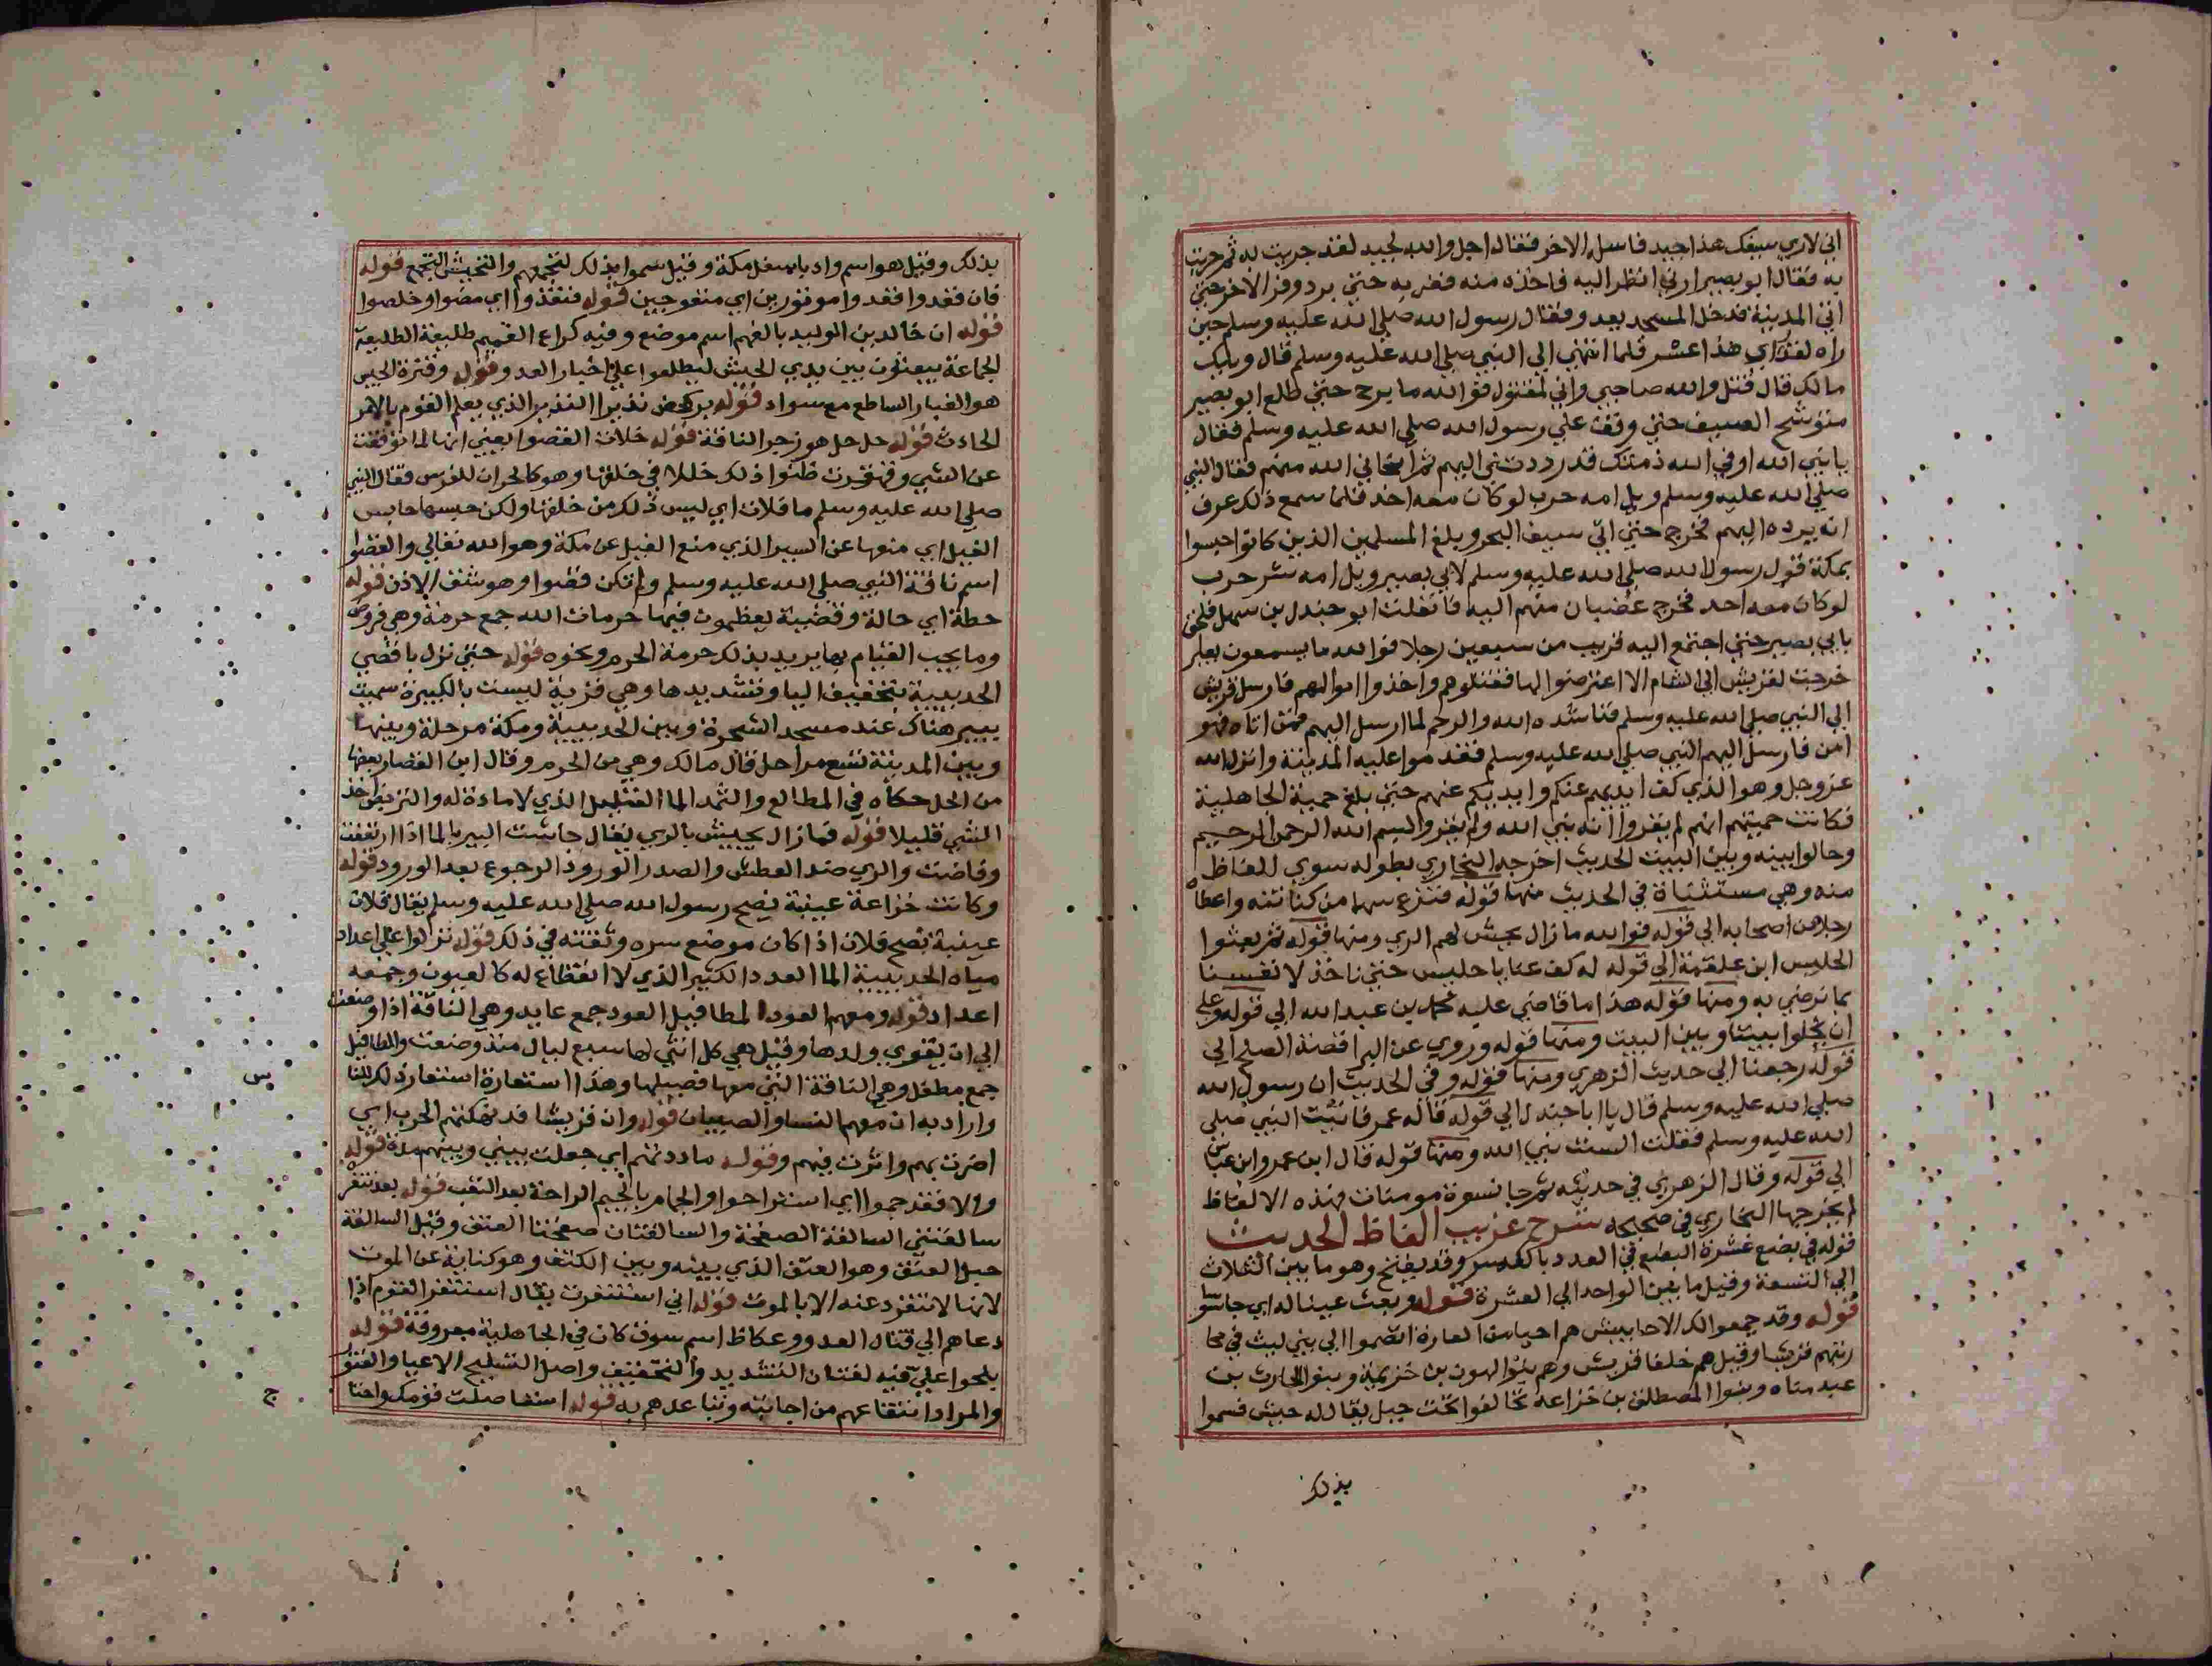 اني لاري سيفك هذا جيد فاسله الاخر فقال اجل والله لجيد لقد جربت له ثم جربت
به فقال ابو بصير ارني انظر اليه فاخذه منه فضربه حتى برد وفر الاخر حتى
اتي المدينة فدخل المسجد يعدو فقال رسول الله صلى الله عليه وسلم حين
راه لقد راي هذا عشر فلما انتهي الي النبي صلى الله عليه وسلم قال ويلك
مالك قال قتل والله صاحبي واني لمقتول فوالله ما برح حتى طلع ابو بصير
متوشح السيف حتى وقف علي رسول الله صلى الله عليه وسلم فقال
يا نبي الله اوفي الله ذمتك قد رددتني اليهم ثم انجاني الله منهم فقال النبي
صلى الله عليه وسلم ويل امه حرب لو كان معه احد فلما سمع ذلك عرف
انه يرده اليهم فخرج حتى اتي سيف البحر وبلغ المسلمين الذين كانوا حبسوا
بمكة قول رسول الله صلى الله عليه وسلم لابي بصير ويل امه شر حرب
لو كان معه احد فخرج عضبان منهم اليه فانفلت ابو جندل بن سهيل فلحق
بابي بصير حتى اجتمع اليه قريب من سبعين رجلا فوالله ما يسمعون بعير
خرجت لقريش الي الشام الا اعترضوا لها فقتلوهم واخذوا اموالهم فارسل قريش
الي النبي صلى الله عليه وسلم فناشده الله والرحم لما ارسل اليهم فمن اتاه فهو
امن فارسل اليهم النبي صلى الله عليه وسلم فقدموا عليه المدينة وانزل الله
عز وجل وهو الذي كف ايديهم عنكم وايديكم عنهم حتى بلغ حمية الجاهلية
فكانت حميتهم انهم لم يقروا انه نبي الله ولم يقروا بسم الله الرحمن الرحيم
وحالوا بينه وبين البيت الحديث اخرجه البخاري بطوله سوي الفاظ
منه وهي مستثناة في الحديث منها قوله فنزع سهما من كنانته واعطاه
رجلا من اصحابه الي قوله فوالله ما زال يجيش لهم الري ومنها قوله ثم بعثوا
الحليس ابن علقمة الي قوله له كف عنا يا حليس حتى ناخذ لانفسنا
بما نرضي به ومنها قوله هذا ما قاضي عليه محمد بن عبد الله الي قوله وعلي
ان يخلوا بيننا وبين البيت ومنها قوله وروي عن البرا قصة الصلح الي
قوله رجعنا الي حديث الزهري ومنها قوله وفي الحديث ان رسول الله
صلى الله عليه وسلم قال يا ابا جندل الي قوله قاله عمر فاتيت النبي صلى
الله عليه وسلم فقلت الست نبي الله ومنها قوله قال ابن عمر وابن عباس
الي قوله وقال الزهري في حديثه ثم جا نسوة مومنات فهذه الالفاظ
لم يخرجها البخاري في صحيحه شرح غريب الفاظ الحديث
قوله في بضع عشرة البضع في العدد بالكسر وقد يفتح وهو ما بين الثلاث
الي التسعة وقيل ما بين الواحد الي العشرة قوله وبعث عينا له اي جاسوسا
قوله وقد جمعوا لك الاحابيش هم احيا من القارة انضموا الي بني ليث في محا
ربتهم قريشا وقيل هم حلفا قريش وهم بنوا الهون بن خزيمة وبنوا الحارث بن
عبد مناه وبنوا المصطلق بن خزاعة تحالفوا تحت جبل يقال له حبيش فسموا
بذلك
بذلك وقيل هو اسم واد باسفل مكة وقيل سموا بذلك لتجمعهم والتحبيش التجمع قوله
فان قعدوا قعدوا موتورين اي منفوجين قوله فنفذوا اي مضوا وخلصوا
قوله ان خالد بن الوليد بالغميم اسم موضع وفيه كراع الغميم طليعة الطليعة
الجماعة يبعثون بين يدي الجيش ليطلعوا علي اخبار العدو وقوله وقترة الجيش
هو الغبار الساطع مع سواد قوله يركض نذيرا النذير الذي يعلم القوم بالامر
الحادث قوله حل حل هو زجر الناقة قوله خلات القصوا يعني انها لما توقفت
عن المشي وتقهقرت ظنوا ذلك خللا في خلقها وهو كالحران للفرس فقال النبي
صلى الله عليه وسلم ما خلات اي ليس ذلك من خلقها ولكن حبسها حابس
الفيل اي منعها عن السير الذي منع الفيل عن مكة وهو الله تعالي والقصوا
اسم ناقة النبي صلى الله عليه وسلم ولم تكن قصوا وهو شق الاذن قوله
خطة اي حالة وقضية يعظمون فيها حرمات الله جمع حرمة وهي فروض
وما يجب القيام بها يريد بذلك حرمة الحرم ونحوه قوله حتى نزل باقصي
الحديبية بتخفيف اليا وتشديدها وهي قرية ليست بالكبيرة سميت
ببير هناك عند مسجد الشجرة وبين الحديبية ومكة مرحلة وبينها
وبين المدينة تسع مراحل قال مالك وهي من الحرم وقال ابن القصار بعضها
من الحل حكاه في المطالع والثمد الما القليل الذي لا مادة له والتربض اخذ
الشي قليلا قوله فما زال يجيش بالري يقال جاشت البير بالما اذا ارتفعت
وفاضت والري ضد العطش والصدر الورود الرجوع بعد الورود قوله
وكانت خزاعة عيبة نصح رسول الله صلى الله عليه وسلم يقال فلان
عيبة نصح فلان اذا كان موضع سره وثقته في ذلك قوله نزلوا علي اعداد
مياه الحديبية الما العدد الكثير الذي لا انقطاع له كالعيون وجمعه
اعداد قوله ومعهم العوذ المطافيل العوذ جمع عايد وهي الناقة اذا وضعت
الي ان يقوي ولدها وقيل هي كل انثي لها سبع ليال منذ وضعت والمطافيل
جمع مطفل وهي الناقة التي معها فصيلها وهذا استعارة استعار ذلك للنسا
واراد به ان معهم النسا والصبيان قوله وان قريشا قد نهكتهم الحرب اي
اضرت بهم واثرت فيهم وقوله ماددتهم اي جعلت بيني وبينهم مدة قوله
والا فقد جموا اي استراحوا والجمام بالجيم الراحة بعد التعب قوله بعد تنفرد
سالفتي السالفة الصفحة والسالفتان صفحتا العنق وقيل السالفة
حبل العنق وهو العنق الذي بينه وبين الكتف وهو كناية عن الموت
لانها لا تنفرد عنه الا بالموت قوله اني استنفرت يقال استنفر القوم اذا
دعاهم الي قتال العدو وعكاظ اسم سوق كان في الجاهلية معروفة قوله
بلحوا علي فيه لغتان التشديد والتخفيف واصل التبليح الاعيا والفتور
والمراد امتناعهم من اجابته وتباعدهم به قوله استاصلت قومك واجتا